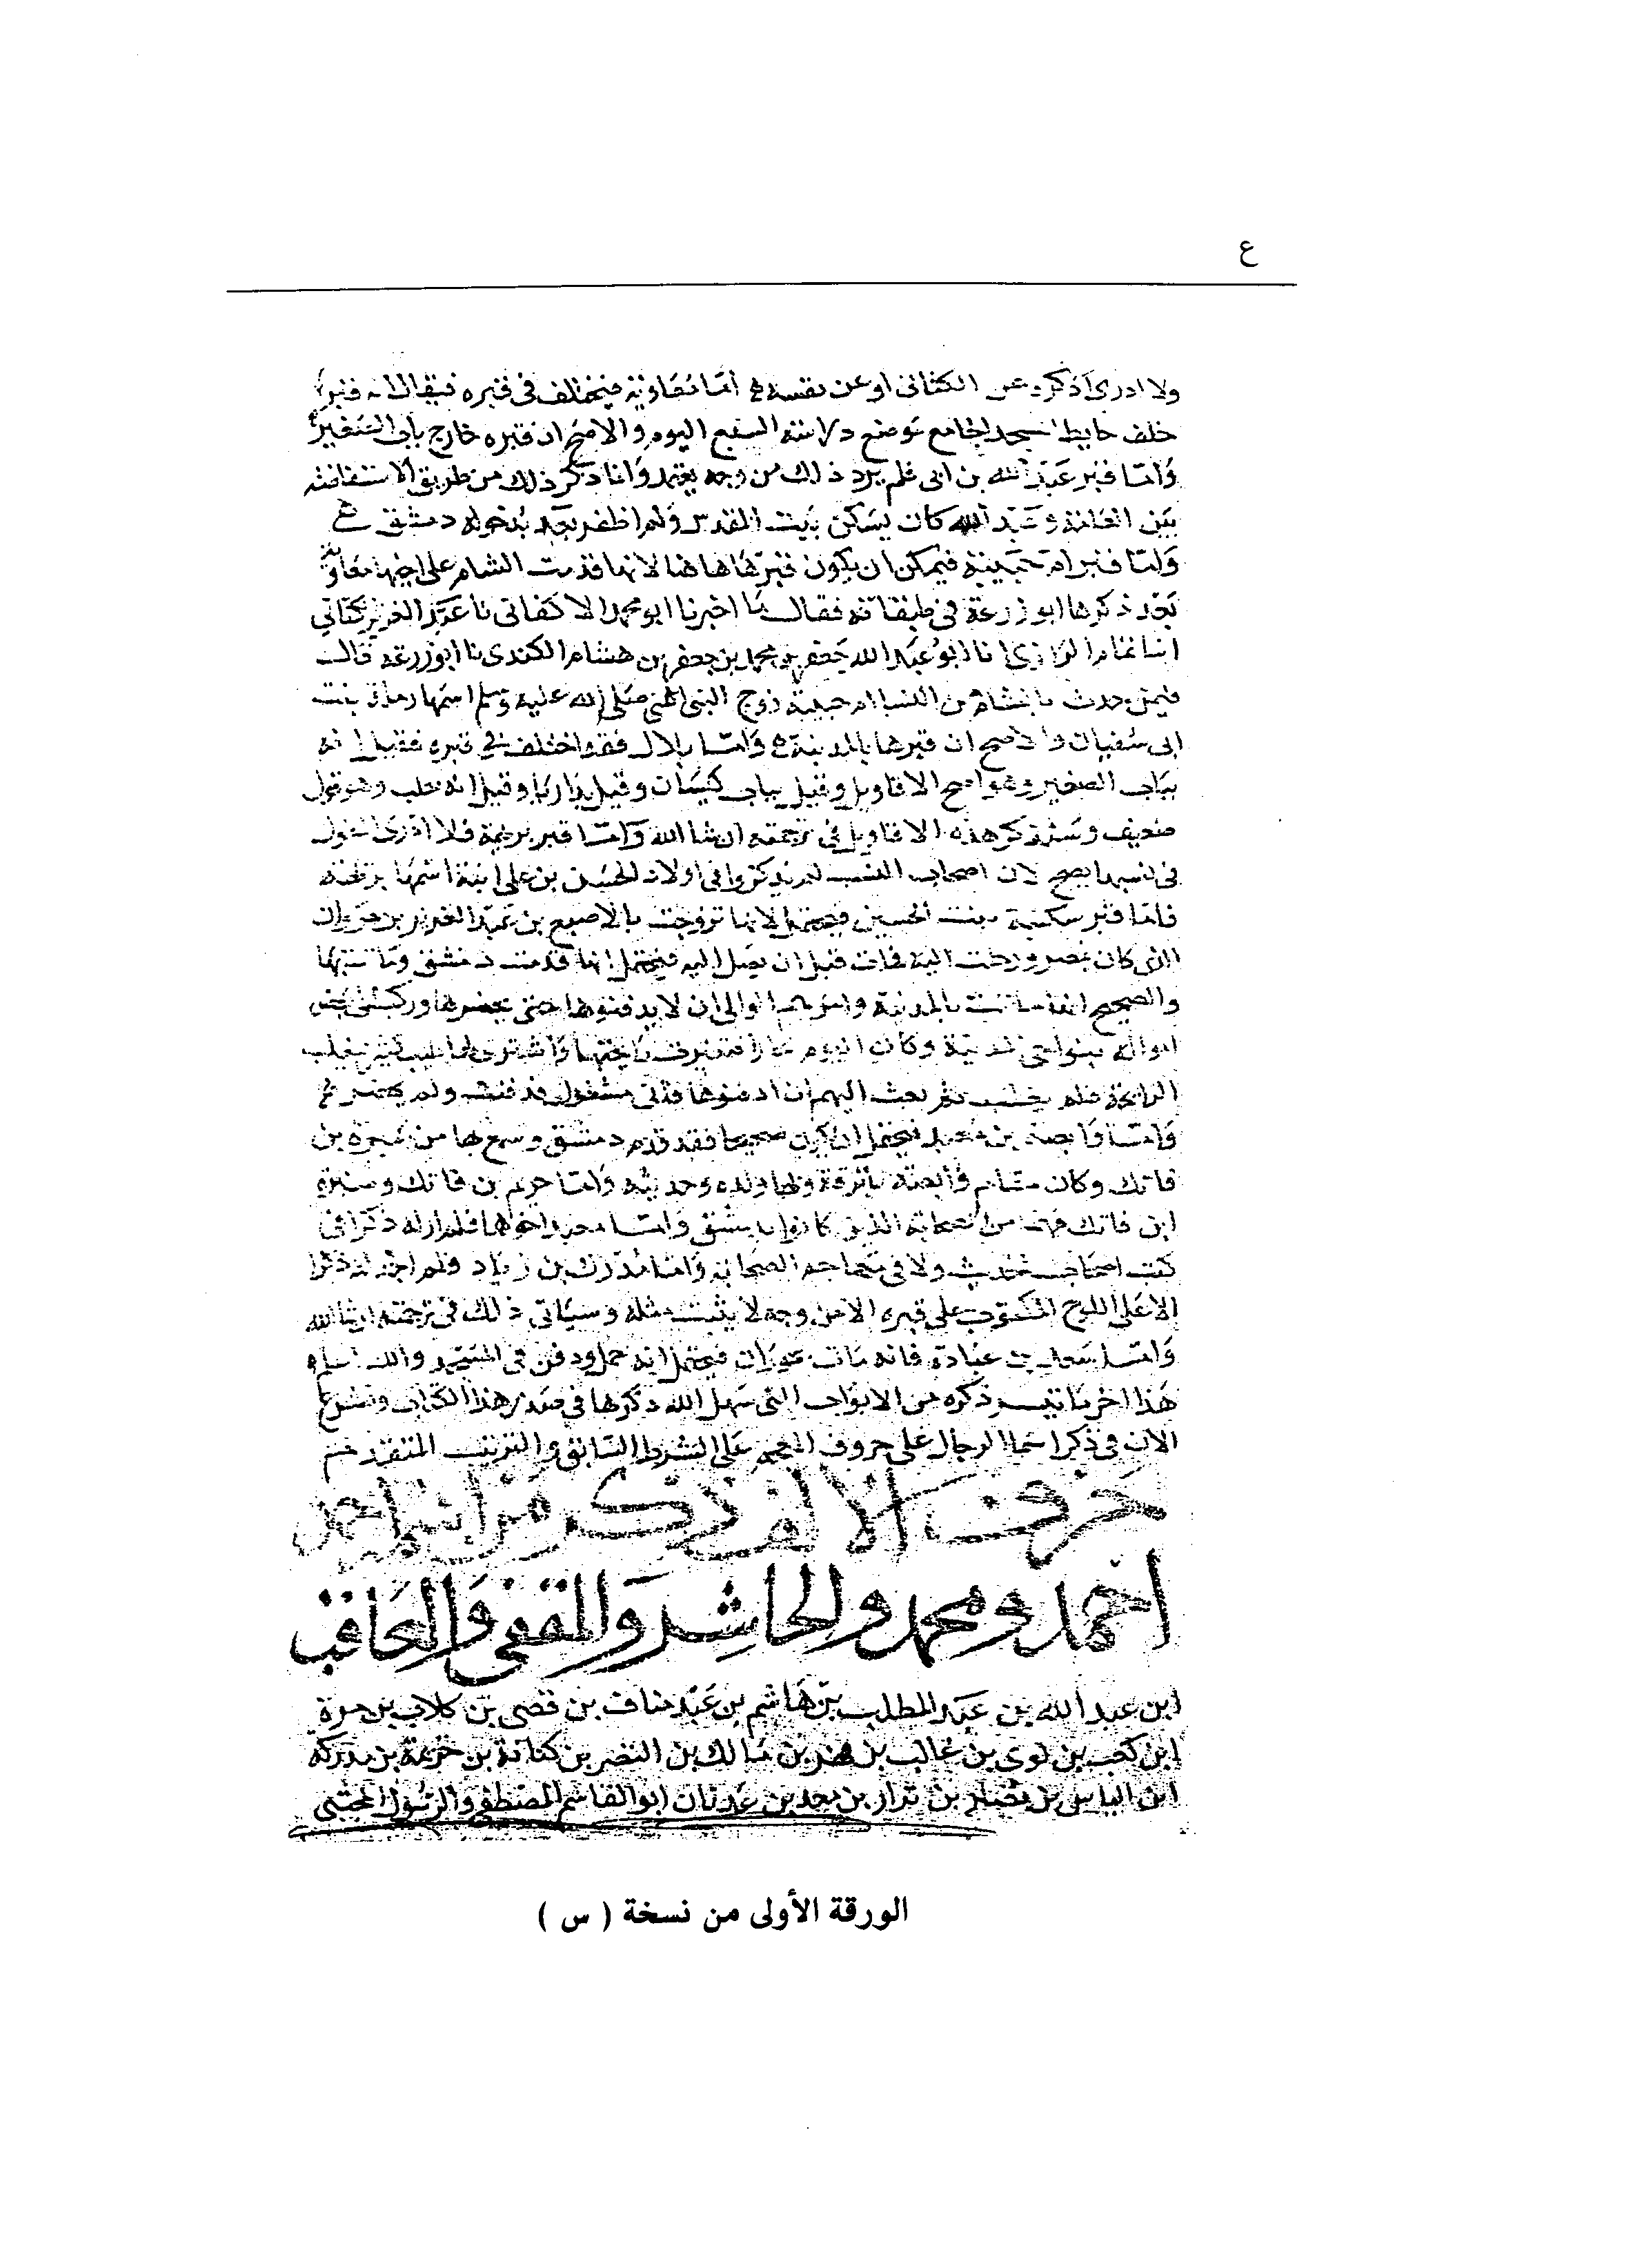 ع
ولا ادرى اذكره عن الكتانى او عن نفسه اما معاوية فيختلف فى قبره فيقال انه قبر
خلف حايط المسجد الجامع موضع دراسة السبع اليوم والاصح ان قبره خارج باب الصغير
وامّا قبر عبد الله بن ابى فلم يرد ذلك من وجه يعتمد وانا ذكر ذلك من طريق الاستفاضة
بين العامة وعبد الله كان يسكن بيت المقدس ولم اظفر بعد بدخوله دمشق
وامّا قبر ام حبيبة فيمكن ان يكون قبرها هاهنا لانها قدمت الشام على اخيها معاوية
بعد ذكرها ابو زرعة فى طبقاته فقال ما اخبرنا ابو محمد الاكفانى نا عبد العزيز الكتانى
انبا تمام الرازى انا ابو عبد الله جعفر بن محمد بن جعفر بن هشام الكندى نا ابو زرعة قال
فيمن حدث بالشام من النسا ام حبيبة زوج النبى صلى الله عليه وسلم اسمها رملة بنت
ابى سفيان والاصح ان قبرها بالمدينة وامّا بلال فقد اختلف فى قبره فقيل انه
بباب الصغير وهو اصح الاقاويل وقيل بباب كيسان وقيل بداريا وقيل انه بحلب وهو قول
ضعيف وسنذكر هذه الاقاويل فى ترجمته ان شا الله وامّا قبر فلا ادرى
فى نسبها يصح لان اصحاب النسب لم يذكروا فى اولاد الحسن بن على ابنة اسمها
فامّا قبر سكينة بنت الحسين فيحتمل لانها تزوجت بالاصبغ بن عبد العزيز بن مروان
الذى كان بمصر ورحلت اليه فمات قبل ان يصل اليه فيحتمل انها قدمت دمشق وماتت بها
والصحيح انها ماتت بالمدينة الوالى ان لا يدفنوها حتى يحضرها وركب الى بعض
امواله بنواحى المدينة وكان اليوم حارا فتغيرت رايحتها واشترى لها طيب كثير ليغلب
الرايحة فلم يغلب ثم بعث اليهم ان ادفنوها فانى مشغول فدفنت ولم يحضر
وامّا وابصة بن معبد فيحتمل ان يكون صحيحا فقد قدم دمشق وسمع بها من سبرة بن
فاتك وكان مقام وابصة بالرقة وبها ولده وحديثه وامّا خريم بن فاتك وسبرة
ابن فاتك فهما من الصحابة الذين كانوا بدمشق وامّا اخوهما فلم ار له ذكرا فى
كتب اصحاب الحديث ولا فى معاجم الصحابة وامّا مدرك بن زياد فلم اجد له ذكرا
الا على اللوح المكتوب على قبره الا من وجه لا يثبت مثله وسياتى ذلك فى ترجمته ان شا الله
وامّا سعد بن عبادة فانه مات بحوران فيحتمل انه حمل ودفن فى والله اعلم
هذا اخر ما تيسر ذكره من الابواب التى سهل الله ذكرها فى صدر هذا الكتاب ونشرع
الان فى ذكر اسما الرجال على حروف المعجم على الشرط السابق والترتيب المتقدم
حرف الالف ذكر من اسمه احمد
احمد ومحمد والحاشر والمقفى والعاقب
ابن عبد الله بن عبد المطلب بن هاشم بن عبد مناف بن قصى بن كلاب بن مرة
ابن كعب بن لوى بن غالب بن فهر بن مالك بن النضر بن كنانة بن خزيمة بن مدركة
ابن الياس بن مضر بن نزار بن معد بن عدنان ابو القاسم المصطفى والرسول المجتبى
الورقة الأولى من نسخة ( س )